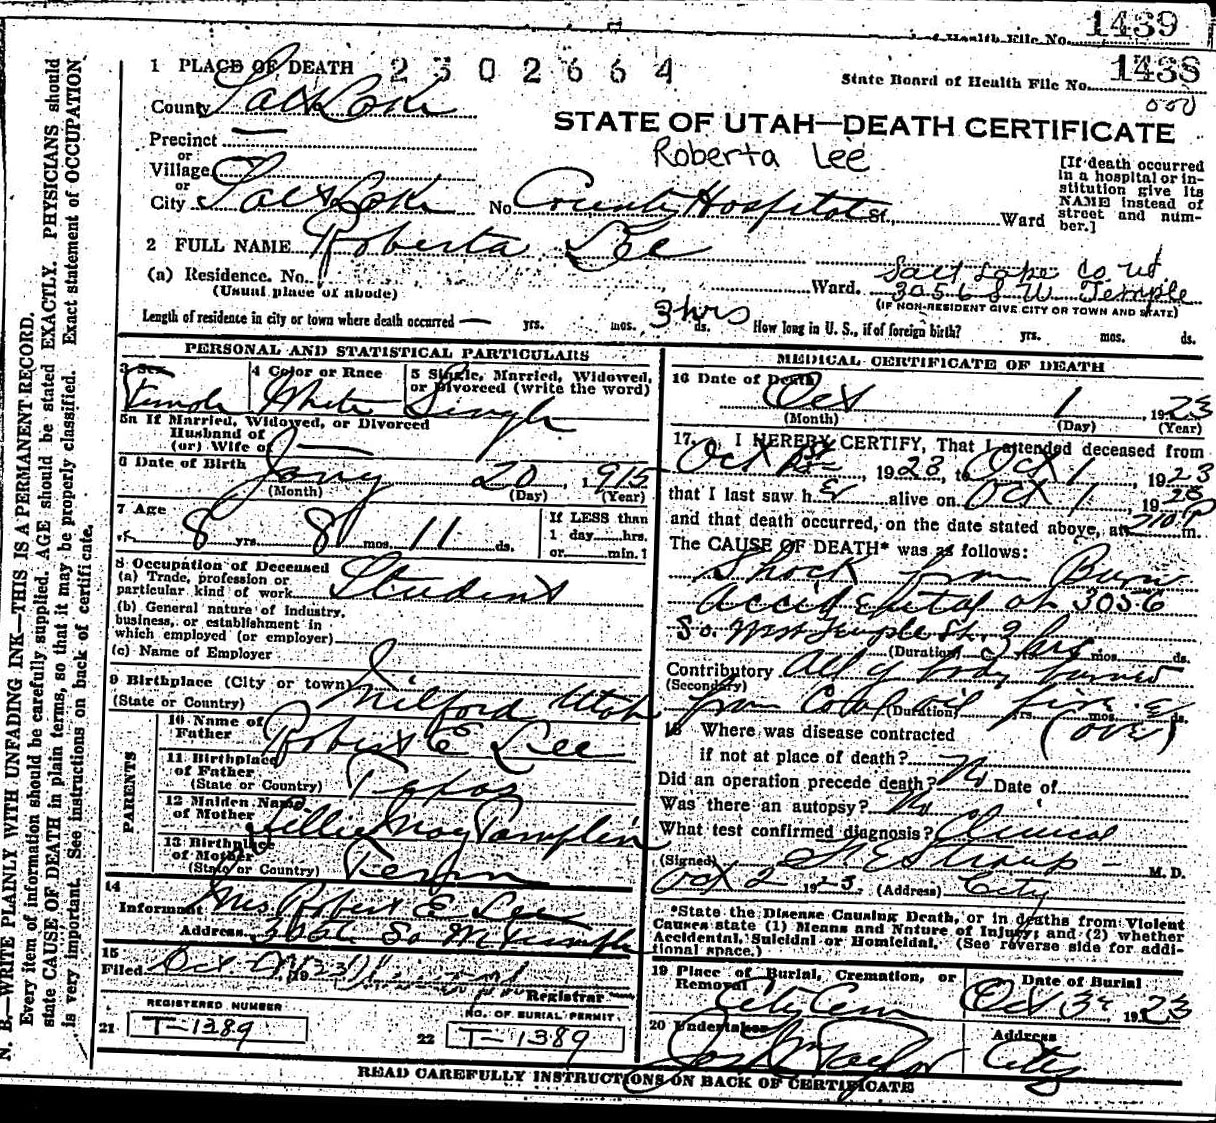 1439
of Health File No.
1 PLACE OF DEATH 2302664
State Board of Health File No. 1438
County Salt Lake
STATE OF UTAH—DEATH CERTIFICATE
Precinct —
or
Roberta Lee
Village
or
City Salt Lake No. County Hospital St., Ward
[If death occurred
in a hospital or in-
stitution give its
NAME instead of
street and num-
ber.]
2 FULL NAME Roberta Lee
(a) Residence. No. Ward. Salt Lake Co Ut
3056 S W Temple
(Usual place of abode)
(IF NON-RESIDENT GIVE CITY OR TOWN AND STATE)
Length of residence in city or town where death occurred — yrs. mos. 3 hrs ds. How long in U. S., if of foreign birth? yrs. mos. ds.
PERSONAL AND STATISTICAL PARTICULARS
3 Sex
Female
4 Color or Race
White
5 Single, Married, Widowed,
or Divorced (write the word)
Single
5a If Married, Widowed, or Divorced
Husband of
(or) Wife of —
6 Date of Birth Jany 20 1915
(Month) (Day) (Year)
7 Age
8 yrs. 8 mos. 11 ds.
If LESS than
1 day hrs.
or min.?
8 Occupation of Deceased
(a) Trade, profession or
particular kind of work Student
(b) General nature of industry,
business, or establishment in
which employed (or employer)
(c) Name of Employer
9 Birthplace (City or town)
(State or Country) Milford Utah
PARENTS
10 Name of
Father Robert E Lee
11 Birthplace
of Father
(State or Country) Texas
12 Maiden Name
of Mother Lillie May Pamplin
13 Birthplace
of Mother
(State or Country)
14
Informant Mrs Robert E Lee
Address So W Temple
15
Filed Oct 1923 Registrar
REGISTERED NUMBER
21 T-1389
NO. OF BURIAL PERMIT
22 T-1389
MEDICAL CERTIFICATE OF DEATH
16 Date of Death
Oct 1, 1923
(Month) (Day) (Year)
17. I HEREBY CERTIFY, That I attended deceased from
Oct 1st, 1923, to Oct 1, 1923
that I last saw her alive on Oct 1, 1923
and that death occurred, on the date stated above, at 710 P m.
The CAUSE OF DEATH* was as follows:
Shock from Burn
Accidental at 3056
So. West Temple St. 3 hrs
(Duration) yrs. mos. ds.
Contributory All of body burned
(Secondary)
from Coal oil fire
(Duration) yrs. mos. ds.
(OVE)
18 Where was disease contracted
if not at place of death?
Did an operation precede death? No Date of
Was there an autopsy? No
What test confirmed diagnosis? Clinical
(Signed) M. D.
Oct 2 1923. (Address) City
*State the Disease Causing Death, or in deaths from Violent
Causes state (1) Means and Nature of Injury; and (2) whether
Accidental, Suicidal or Homicidal. (See reverse side for addi-
tional space.)
19 Place of Burial, Cremation, or
Removal
City Cem
Date of Burial
Oct 3rd, 1923
20 Undertaker
Taylor
Address
City
READ CAREFULLY INSTRUCTIONS ON BACK OF CERTIFICATE
N. B.—WRITE PLAINLY WITH UNFADING INK—THIS IS A PERMANENT RECORD.
Every item of information should be carefully supplied. AGE should be stated EXACTLY. PHYSICIANS should
state CAUSE OF DEATH in plain terms, so that it may be properly classified. Exact statement of OCCUPATION
is very important. See instructions on back of certificate.